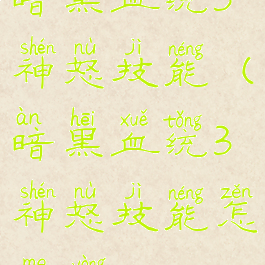 暗黑血统3
shén nù jì néng
神怒技能（
àn hēi xuě tǒng
暗黑血统3
shén nù jì néng zěn
神怒技能怎
me